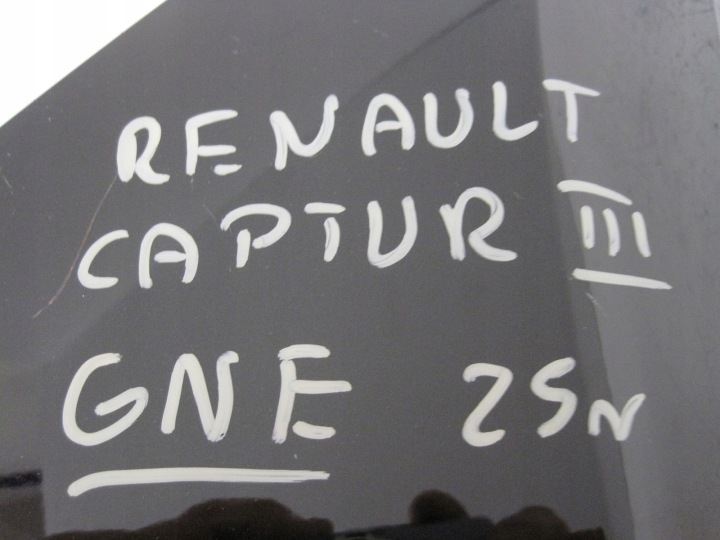 RENAULT
CAPTUR III
GNE 25N